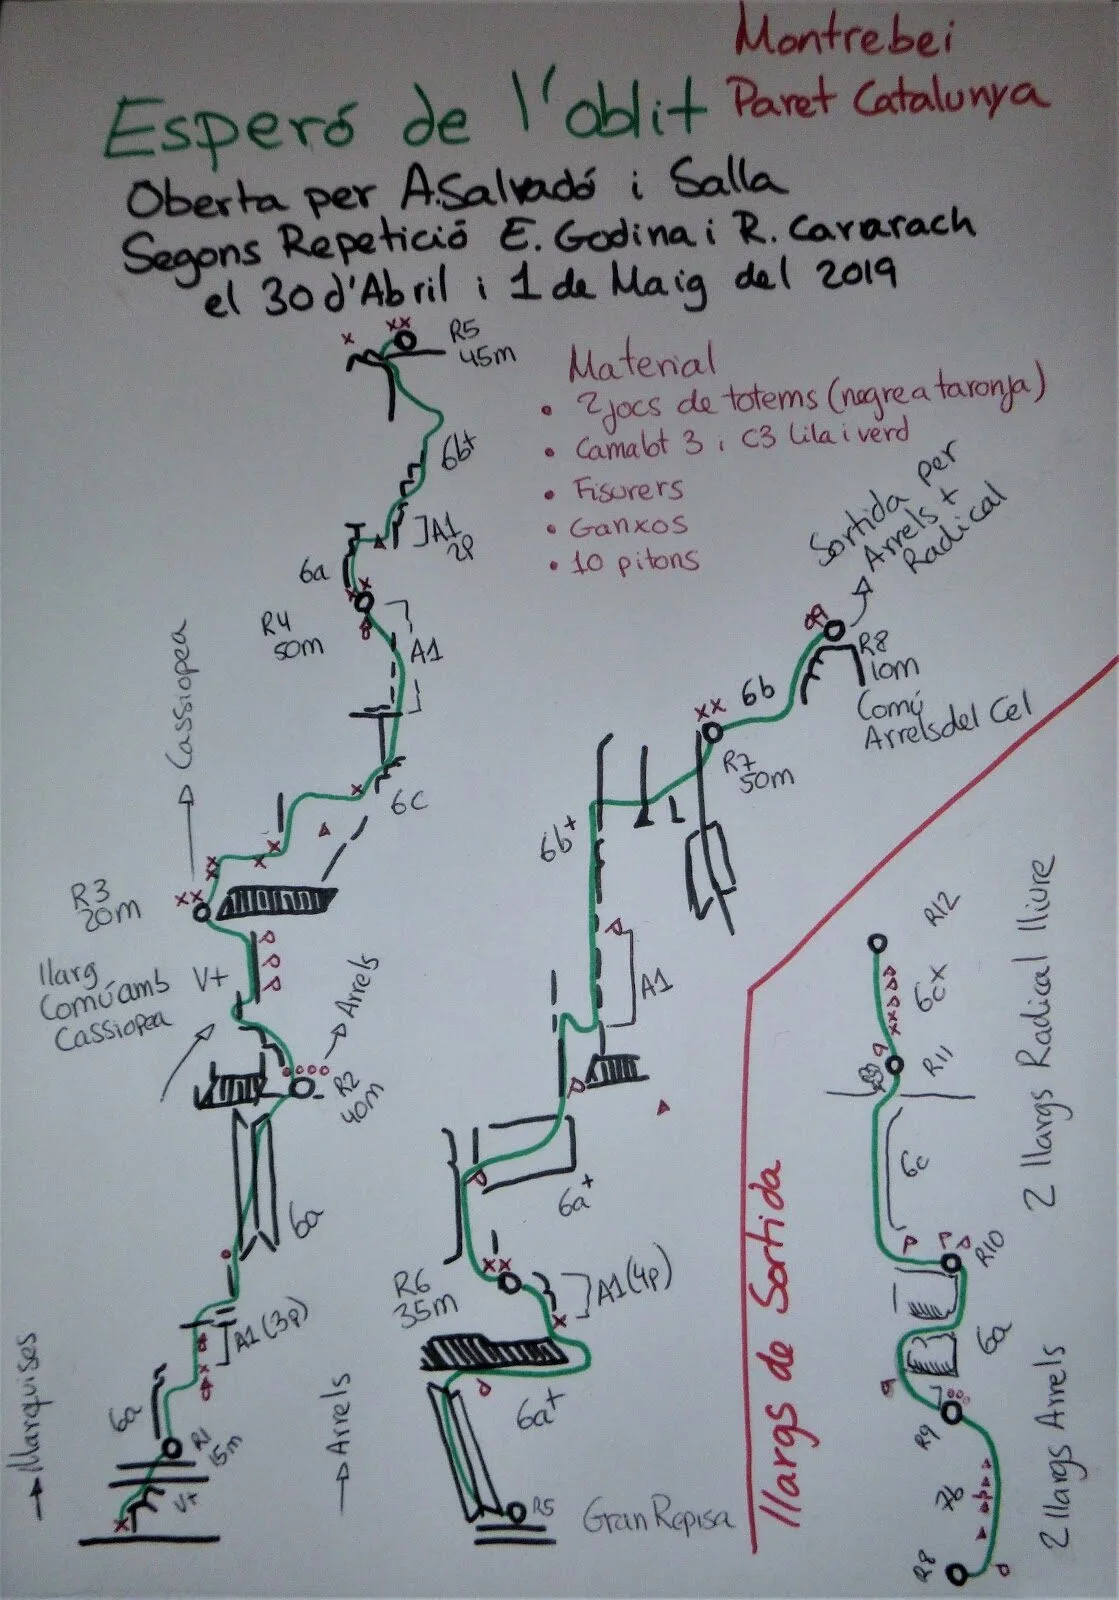 Montrebei
Paret Catalunya
Esperó de l'oblit
Oberta per A.Salvadó i Salla
Segons Repetició E. Godina i R. Cararach
el 30 d'Abril i 1 de Maig del 2019
Material
• 2 jocs de totems (negre a taronja)
• Camabt 3 i C3 Lila i verd
• Fisurers
• Ganxos
• 10 pitons
R5
45m
6b+
A1
2p
6a
R4
50m
A1
→ Cassiopea
6c
R3
20m
llarg
Comú amb
Cassiopea
V+
→ Arrels
R2
40m
6a
A1 (3p)
6a
R1
15m
V+
→ Marquises
→ Arrels
Sortida per
Arrels +
Radical
R8
10m
Comú
Arrels del Cel
6b
R7
50m
6b+
A1
6a+
R6
35m
A1 (4p)
6a+
R5
Gran Repisa
llargs de Sortida
R12
6c
R11
6c
R10
6a
R9
7b
R8
2 llargs Radical lliure
2 llargs Arrels